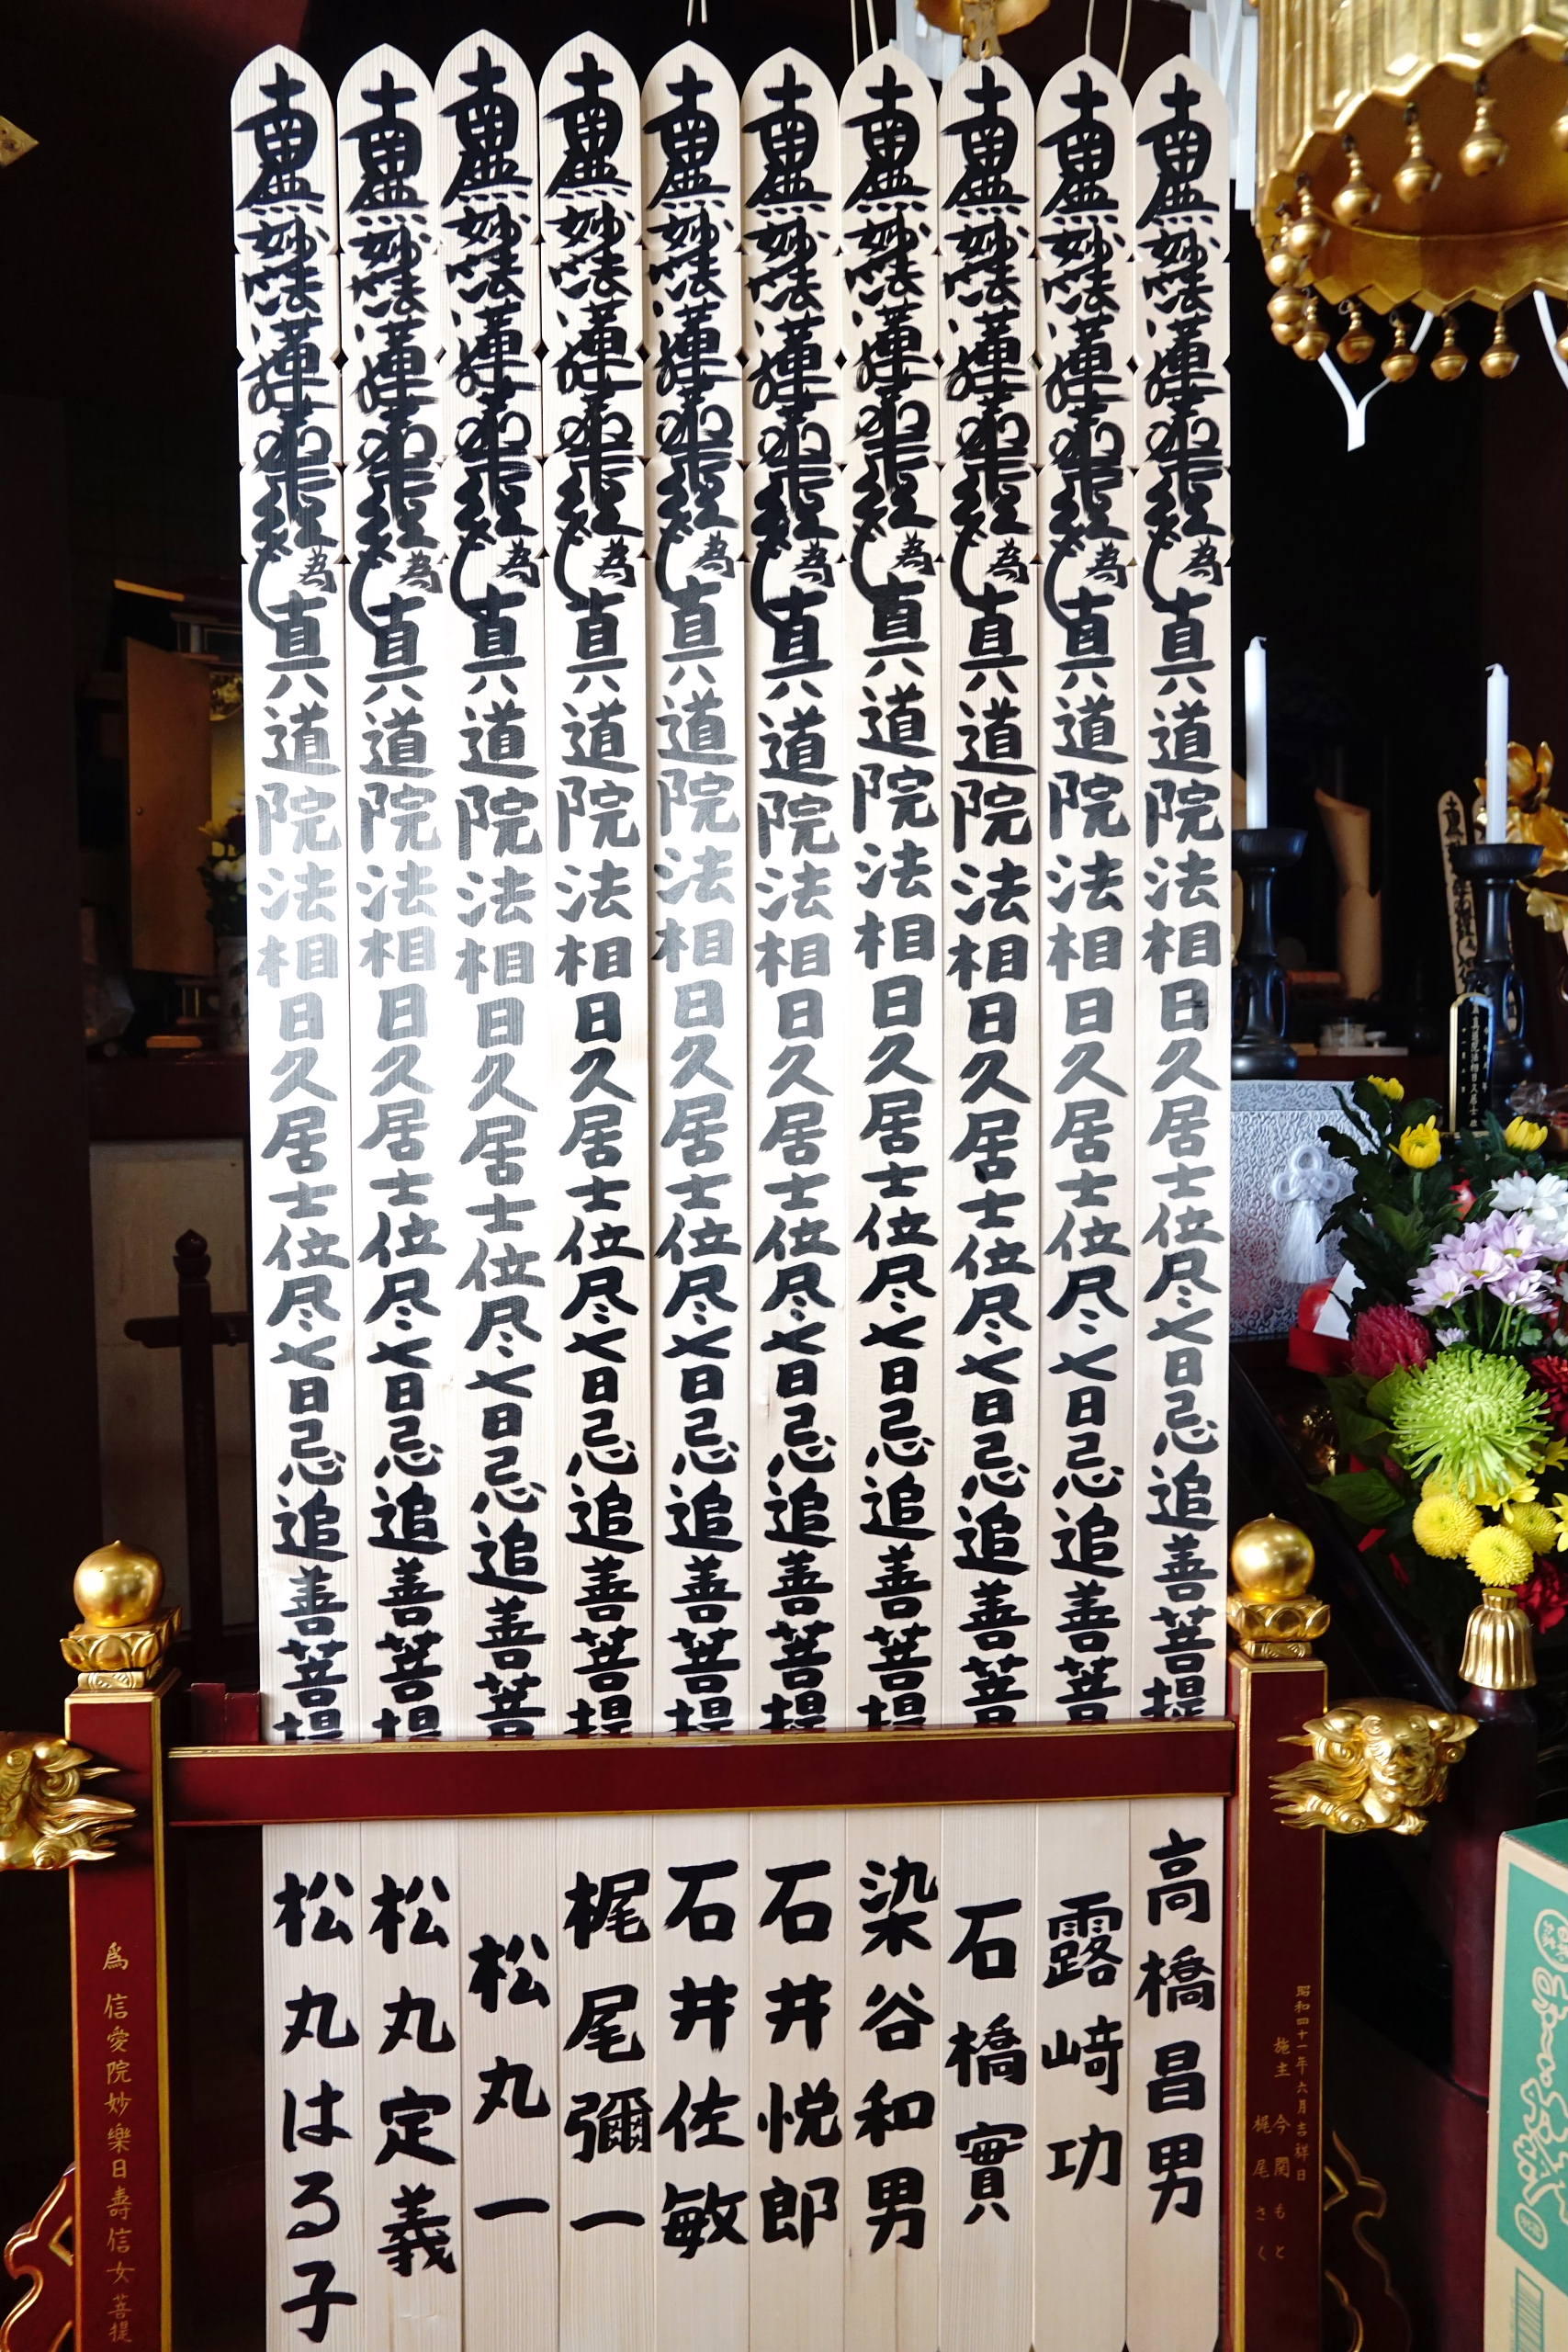 南無妙法蓮華経為真道院法相日久居士位尽七日忌追善菩提
高橋昌男
南無妙法蓮華経為真道院法相日久居士位尽〻七日忌追善菩
露崎功
南無妙法蓮華経為真道院法相日久居士位尽〻七日忌追善菩
石橋實
南無妙法蓮華経為真道院法相日久居士位尽〻七日忌追善菩提
染谷和男
南無妙法蓮華経為真道院法相日久居士位尽〻七日忌追善菩提
石井悦郎
南無妙法蓮華経為真道院法相日久居士位尽〻七日忌追善菩提
石井佐敏
南無妙法蓮華経為真道院法相日久居士位尽〻七日忌追善菩提
梶尾彌一
南無妙法蓮華経為真道院法相日久居士位尽〻七日忌追善菩
松丸一
南無妙法蓮華経為真道院法相日久居士位尽〻七日忌追善菩提
松丸定義
南無妙法蓮華経為真道院法相日久居士位尽〻七日忌追善菩提
松丸はる子
昭和四十一年六月吉祥日
施主 今関もと
梶尾さく
為 信愛院妙樂日壽信女菩提